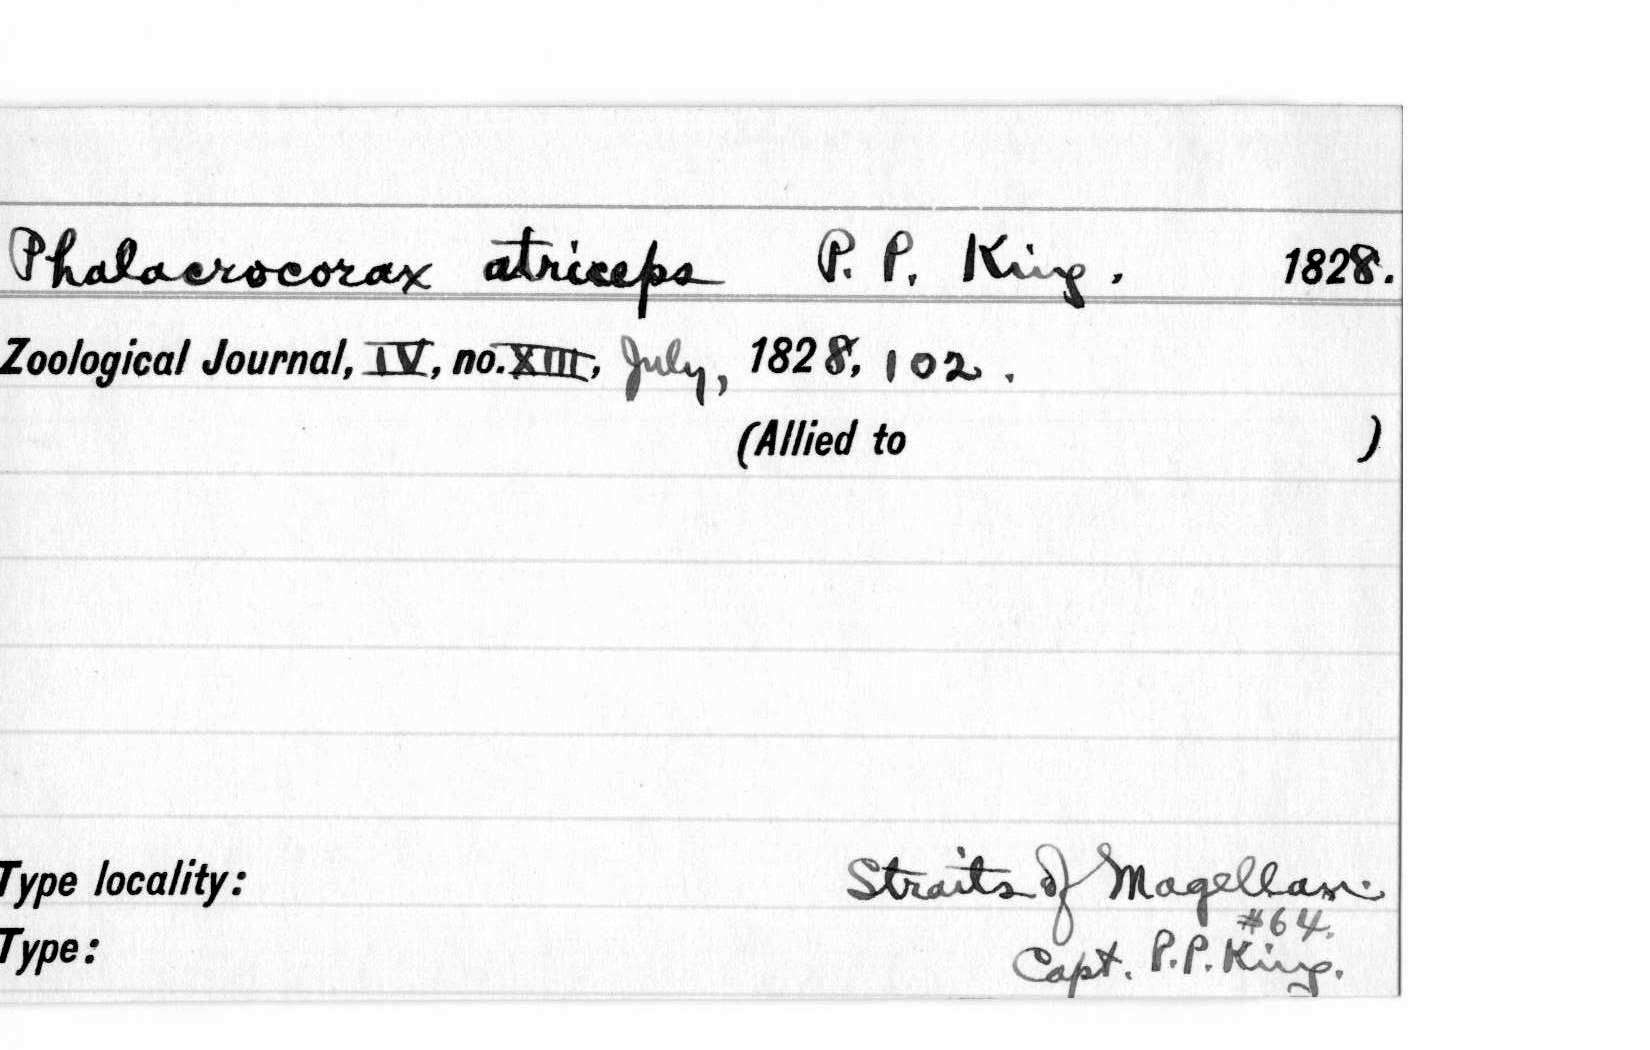 Phalacrocorax atriceps P. P. King. 1828.
Zoological Journal, IV, no. XIII, July, 1828, 102.
(Allied to )
Type locality: Straits of Magellan.
#64.
Type: Capt. P.P. King.